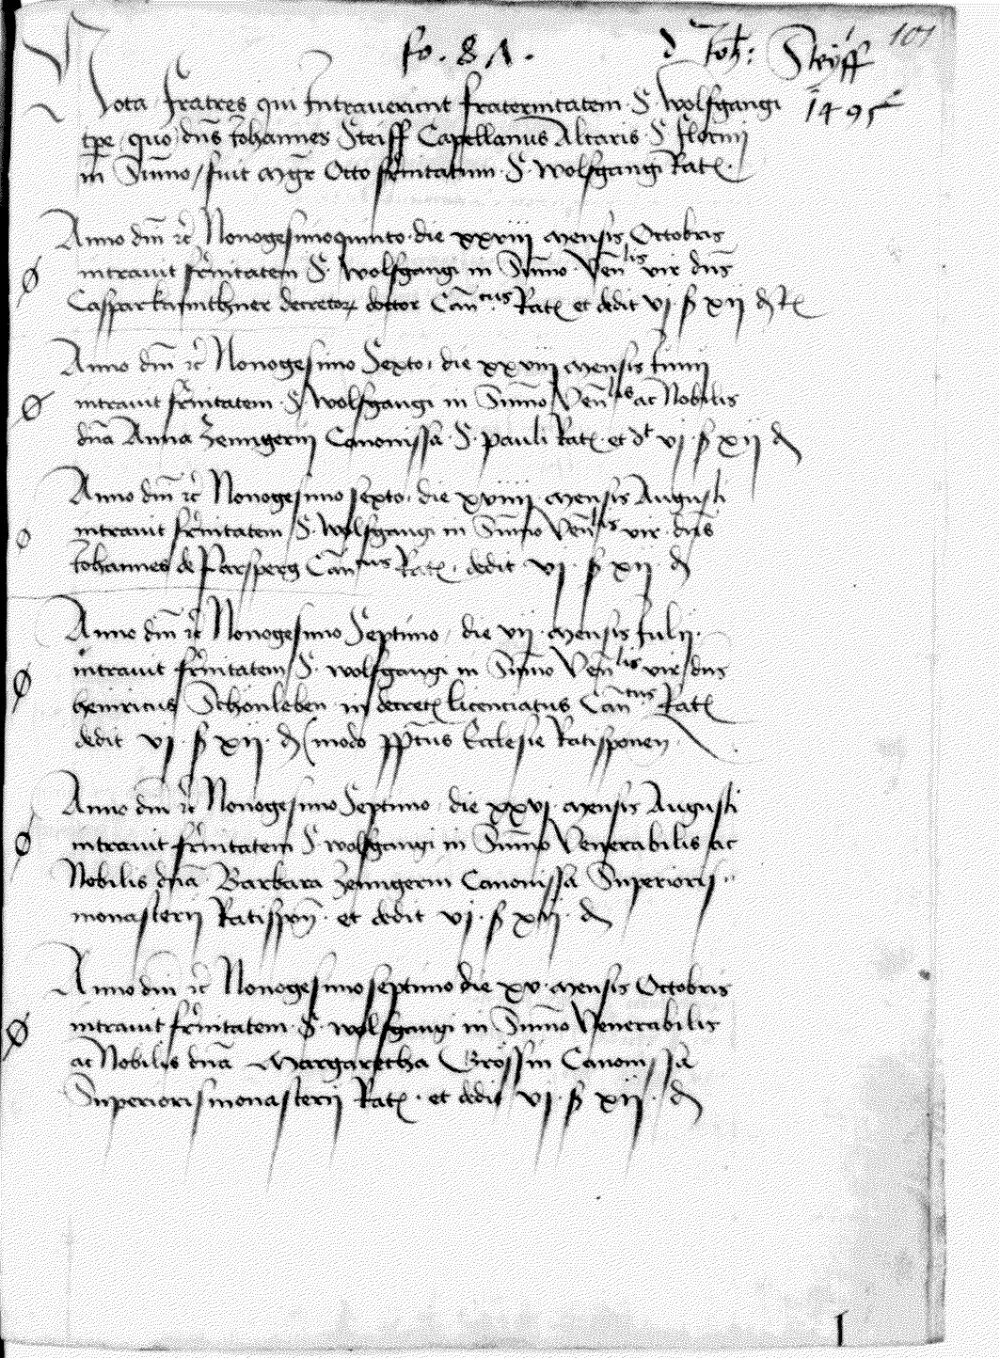 fo. 81. d Joh: Steyff 101
Nota fratres qui Intraverunt fraternitatem S. Wolfgangi 1495
tpe quo dns Johannes Steiff Capellanus Altaris S. Florini
in Summo fuit mgr Otto frnitatum S. Wolfgangi Rat.
Anno dni rc Nonogesimoquinto die xxviii mensis Octobris
intravit frnitatem S. Wolfgangi in Summo Venlis vir dns
Caspar decretor doctor Cancus Rat et dedit vj ß xij d
Anno dni rc Nonogesimo Sexto die xxviii mensis Junii
intravit frnitatem S. Wolfgangi in Summo Venlis ac Nobilis
dna Anna Zenngerin Canonissa S. pauli Rat et dt vj ß xij d
Anno dni rc Nonogesimo sexto die xviiii mensis Augusti
intravit frnitatem S. Wolfgangi in Summo Venlis vir dns
Johannes de Parsperg Cancus Rat. dedit vj ß xij d
Anno dni rc Nonogesimo Septimo die vij mensis Julij
intravit frnitatem S. Wolfgangi in Summo Venlis vir dns
heinricus Schonleben in decret licenciatus Cancus Rat
dedit vj ß xij d (modo ppctus Ecclesie Ratisponen
Anno dni rc Nonogesimo Septimo die xxvj mensis Augusti
intravit frnitatem S. Wolfgangi in Summo Venerabilis ac
Nobilis dna Barbara Zenngerin Canonissa Superioris
monasterij Ratispon. et dedit vj ß xij d
Anno dni rc Nonogesimo septimo die xv mensis Octobris
intravit frnitatem S. Wolfgangi in Summo Venerabilis
ac Nobilis dna Margaretha Grössin Canonissa
Superioris monasterij Rat. et dedit vj ß xij d